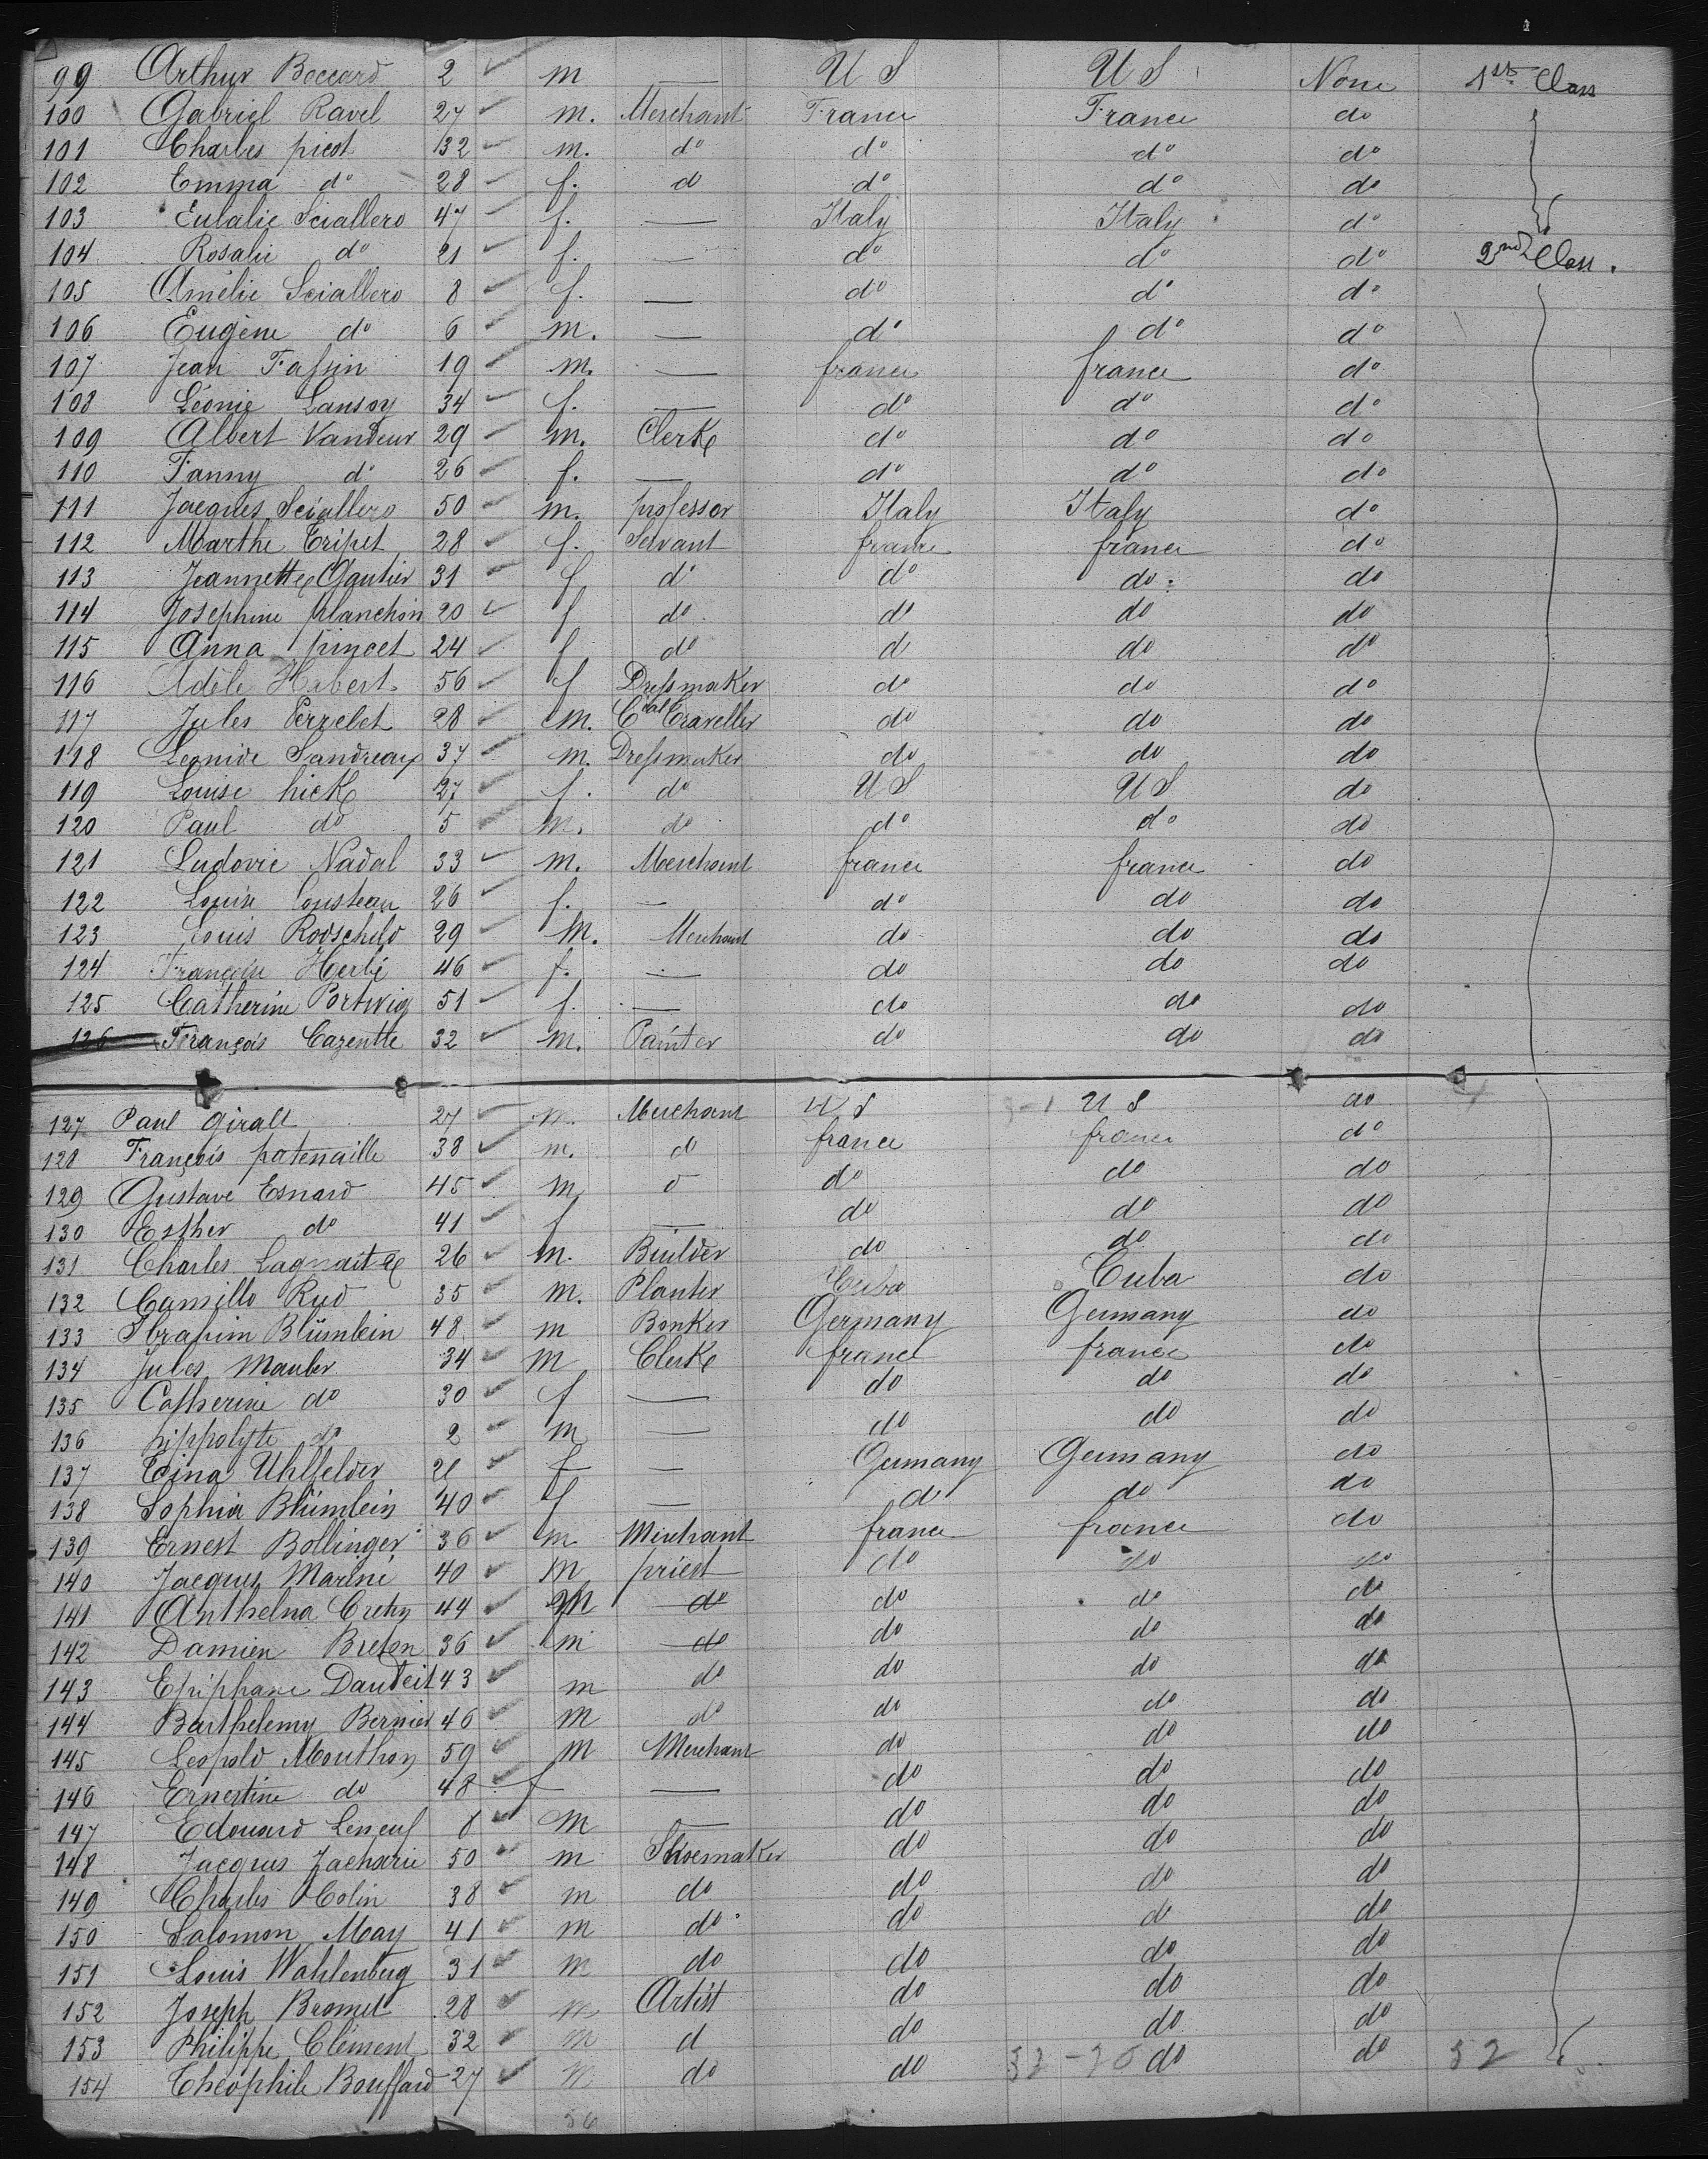 99 Arthur Boccard 2 m — U S U S None 1st Class
100 Gabriel Ravel 27 m. Merchant France France do
101 Charles picot 32 m. do do do do
102 Emma do 28 f. d do do do
103 Eulalie Sciallero 47 f. — Italy Italy do
104 Rosalie do 21 f. — do do do 2nd Class.
105 Amélie Sciallero 8 f. — do do do
106 Eugène do 6 m. — do do do
107 Jean Fassin 19 m. — france france do
108 Léonie Lansoy 34 f. — do do do
109 Albert Vandeur 29 m. Clerk do do do
110 Fanny do 26 f. — do do do
111 Jacques Sciallero 50 m. professor Italy Italy do
112 Marthe Tripet 28 f. Servant france france do
113 Jeannette Gautier 31 f do do do do
114 Josephine planchon 20 f do do do do
115 Anna pincet 24 f do d do do
116 Adèle Habert 56 f Dressmaker do do do
117 Jules Perrelet 28 m. Cial Traveller do do do
118 Leonide Sandreau 37 m. Dressmaker do do do
119 Louise hick 27 f. do U S U S do
120 Paul do 5 m. do do do do
121 Ludovic Nadal 33 m. Merchant france france do
122 Louise Cousteau 26 f. — do do do
123 Louis Rodschild 29 M. Merchant do do do
124 Françoise Herbé 46 f. — do do do
125 Catherine Portwig 51 f. — do do do
126 François Cazentte 32 m. Painter do do do
127 Paul Giralt 27 m. Merchant U S U S do
128 François patenaille 38 m. d france france do
129 Gustave Esnard 45 m. d do do do
130 Esther do 41 f — do do do
131 Charles 26 m. Builder do do do
132 Camillo Rud 35 m. Planter Cuba Cuba do
133 Abrahim Blümlein 48 m Banker Germany Germany do
134 Jules Mauler 34 m Clerk france france do
135 Catherine do 30 f — do do do
136 hippolyte do 2 m — do do do
137 Uhlfelder f — Germany Germany do
138 Sophia Blümlein 40 f — do do do
139 Ernest Bollinger 36 m Merchant france france do
140 Jacques Marine 40 m priest do do do
141 Anthelna Cretin 44 m do do do do
142 Damien Breton 36 m do do do do
143 Epiphane Dauteil 43 m do do do do
144 Barthelemy Bernier 46 m do do do do
145 Leopold Mouthon 59 m Merchant do do do
146 Ernestine do 48 f — do do do
147 Edouard Leneuf 8 m — do do do
148 Jacques Zacharie 50 m Shoemaker do do do
149 Charles Colin 38 m do do do do
150 Salomon May 41 m do do do do
151 Louis Wahlenberg 31 m do do do do
152 Joseph Bromet 28 m Artist do do do
153 Philippe Clément 32 m d do do do
154 Théophile Bouffard 27 m do do do do 52
56